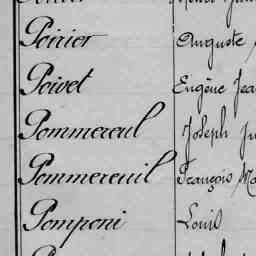 Poirier Auguste
Poivet Eugène
Pommereul Joseph
Pommereuil François
Pomponi Louis